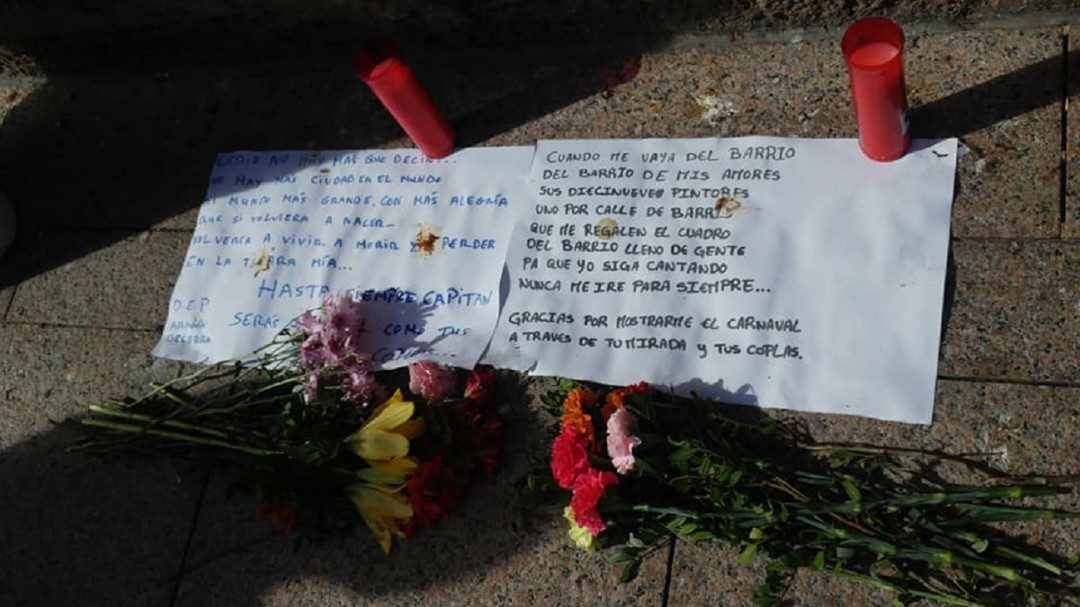 CADIZ NO HAY MAS QUE DECIR...
NO HAY MAS CIUDAD EN EL MUNDO
NI MUNDO MAS GRANDE, CON MAS ALEGRÍA
QUE SI VOLVIERA A NACER...
VOLVERIA A VIVIR, A MORIR Y A PERDER
EN LA TIERRA MÍA...
HASTA SIEMPRE CAPITAN
D.E.P
SERÁS COMO TUS
COPLAS...
CUANDO ME VAYA DEL BARRIO
DEL BARRIO DE MIS AMORES
SUS DIECINUEVE PINTORES
UNO POR CALLE DE BARRIO
QUE ME REGALEN EL CUADRO
DEL BARRIO LLENO DE GENTE
PA QUE YO SIGA CANTANDO
NUNCA ME IRE PARA SIEMPRE...
GRACIAS POR MOSTRARME EL CARNAVAL
A TRAVES DE TU MIRADA Y TUS COPLAS.